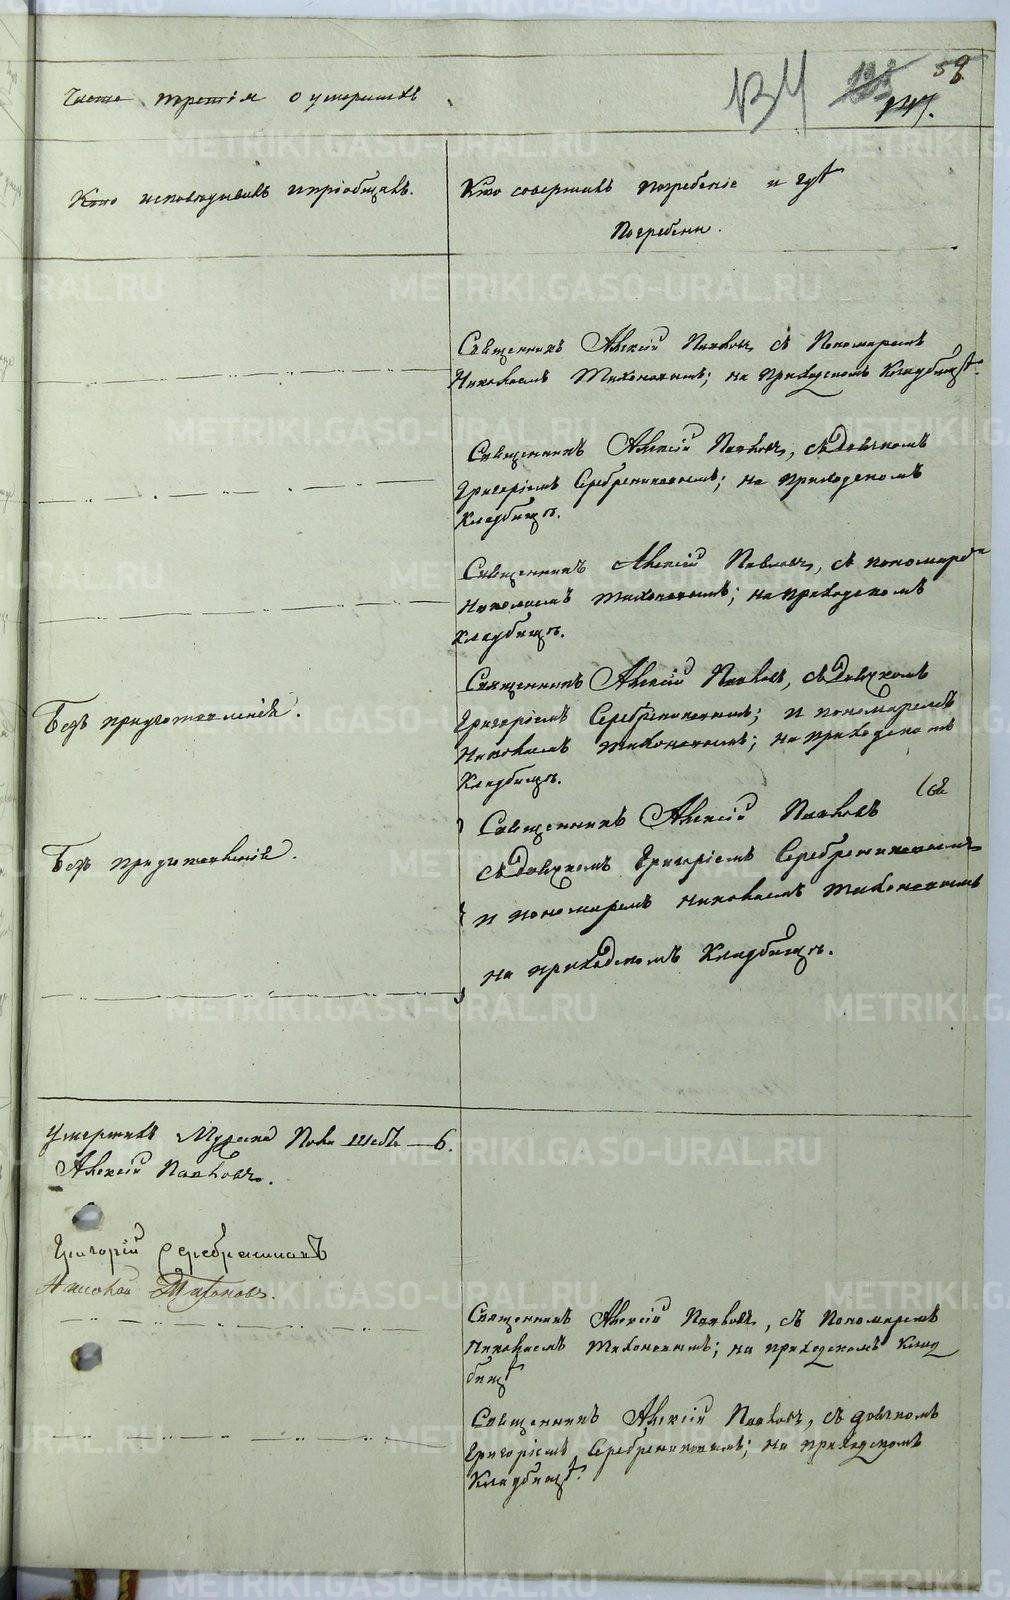 Часть третія о умершихъ
134
58
147.
Кто исповѣдывалъ и пріобщалъ.
Кто совершалъ погребеніе и гдѣ
Погребены.
Священникъ Алексій Павловъ, съ Пономаремъ
Николаемъ Тихоновымъ; на приходскомъ Кладбищѣ.
Священникъ Алексій Павловъ, съ Дьячкомъ
Григоріемъ Серебрениковымъ; на приходскомъ
Кладбищѣ.
Священникъ Алексій Павловъ, съ пономаремъ
Николаемъ Тихоновымъ; на приходскомъ
кладбищѣ.
Священникъ Алексій Павловъ, съ Дьячкомъ
Григоріемъ Серебрениковымъ; и пономаремъ
Николаемъ Тихоновымъ; на приходскомъ
Кладбищѣ.
Безъ приуготовленія.
Священникъ Алексій Павловъ
съ Дьячкомъ Григоріемъ Серебрениковымъ
и пономаремъ Николаемъ Тихоновымъ
на приходскомъ Кладбищѣ.
Безъ приуготовленія.
Умершихъ Мужеска Пола 6.
Алексій Павловъ.
Григорій Серебрениковъ
Николай Тихоновъ.
Священникъ Алексій Павловъ, съ Пономаремъ
Николаемъ Тихоновымъ; на приходскомъ Клад
бищѣ
Священникъ Алексій Павловъ, съ дьячкомъ
Григоріемъ Серебрениковымъ; на приходскомъ
Кладбищѣ.
METRIKI.GASO-URAL.RU